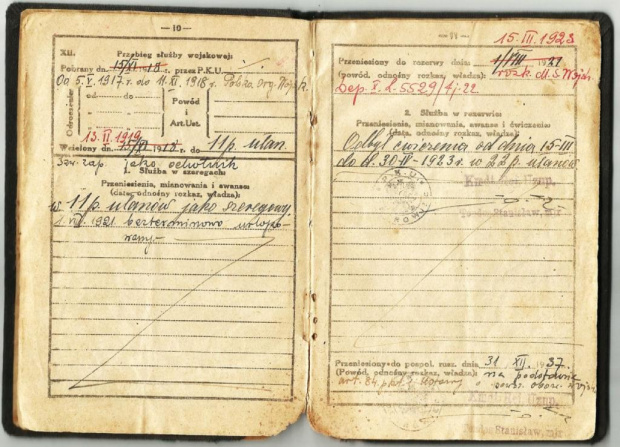 — 10 —
XII. Przebieg służby wojskowej:
Pobrany dn. 15/XI 1918 r. przez P.K.U.
Od 5.V.1917 r. do 11.XI.1918 r. Polska Org. Wojsk.
Odroczenie
od do Powód
i
Art.Ust.
13.II.1919
Wcielony dn. 15/XI 1918 r. do 11 p. ułan.
Szw. zap. jako ochotnik
1. Służba w szeregach
Przeniesienia, mianowania i awanse
(data, odnośny rozkaz, władza):
w 11 p. ułanów jako szeregowy
1921 bezterminowo urlopo-
wany.
— 11 —
15.III.1923
Przeniesiony do rezerwy dnia: 1/VIII 1921
(powód, odnośny rozkaz, władza): rozk. M.S.Wojsk.
Dep. X. L. 5529/
2. Służba w rezerwie:
Przeniesienia, mianowania, awanse i ćwiczenia:
(data, odnośny rozkaz, władza):
Odbył ćwiczenia od dnia 15-III
do d. 30-IV-1923 r. w 23 p. ułanów
P.K.U.
Przeniesiony do pospol. rusz. dnia 31 XII. 1937.
(Powód, odnośny rozkaz, władza): na podstawie
art. 84 pkt. ustawy o powsz. obow. wojsk.